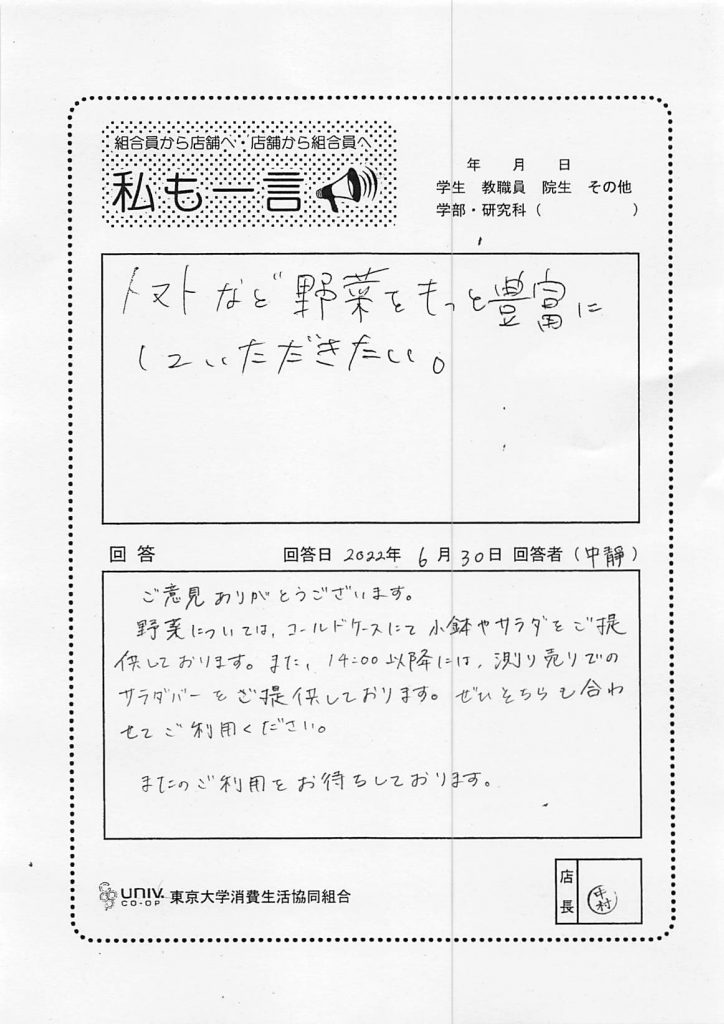 組合員から店舗へ・店舗から組合員へ
私も一言
年 月 日
学生 教職員 院生 その他
学部・研究科（ ）
トマトなど野菜をもっと豊富に
していただきたい。
回答 回答日 2022年 6月30日 回答者（中靜）
ご意見ありがとうございます。
野菜については、コールドケースにて小鉢やサラダをご提
供しております。また、14:00以降には、測り売りでの
サラダバーをご提供しております。ぜひそちらも合わ
せてご利用ください。
またのご利用をお待ちしております。
UNIV.
CO-OP
東京大学消費生活協同組合
店長
中村